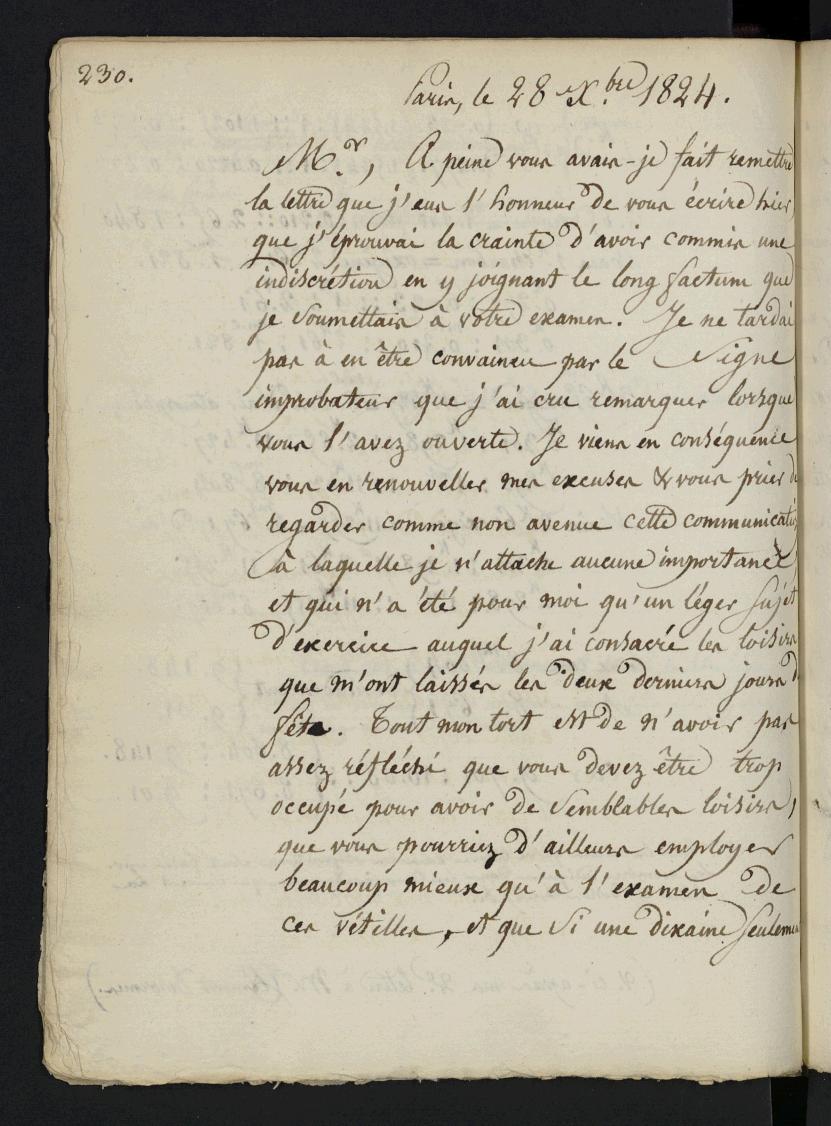 230.
Paris, le 28 X.bre 1824.
M.r, A peine vous avais-je fait remettre
la lettre que j'eus l'honneur de vous écrire hier,
que j'éprouvai la crainte d'avoir commis une
indiscrétion en y joignant le long factum que
je soumettais à votre examen. Je ne tardai
pas à en être convaincu par le signe
improbateur que j'ai cru remarquer lorsque
vous l'avez ouverte. Je viens en conséquence
vous en renouveller mes excuses & vous prier de
regarder comme non avenue cette communication
à laquelle je n'attache aucune importance,
et qui n'a été pour moi qu'un léger sujet
d'exercice auquel j'ai consacré les loisirs
que m'ont laissés les deux derniers jours de
fête. Tout mon tort est de n'avoir pas
assez réfléchi que vous devez être trop
occupé pour avoir de semblables loisirs,
que vous pourriez d'ailleurs employer
beaucoup mieux qu'à l'examen de
ces vétilles, et que si une dixaine seulement